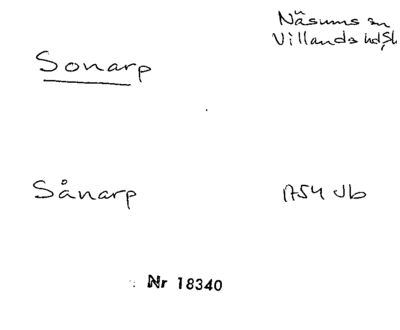 Näsums sn
Villands hd, Sk
Sonarp
Sånarp
1754 Jb
Nr 18340